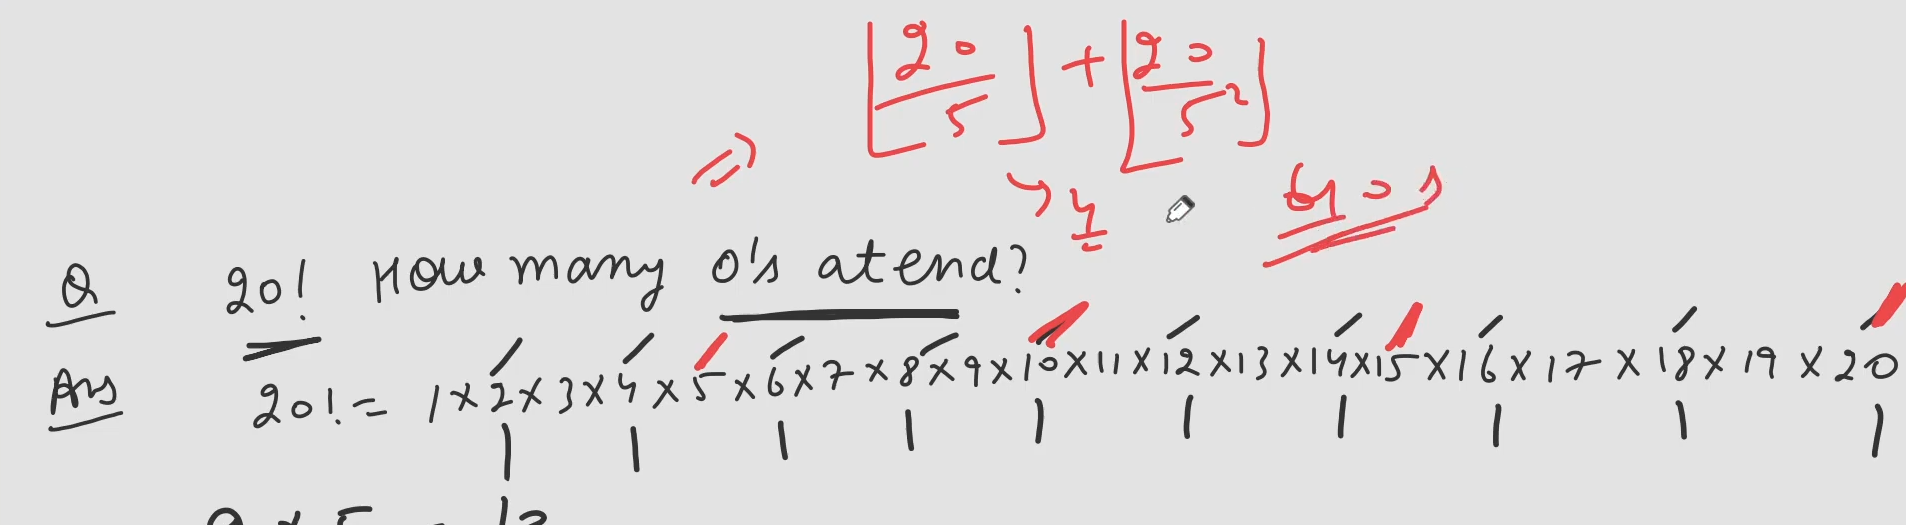 ⌊20/5⌋ + ⌊20/5²⌋
⇒ → 4
Q 20! How many 0's at end?
Ans 20! = 1 × 2 × 3 × 4 × 5 × 6 × 7 × 8 × 9 × 10 × 11 × 12 × 13 × 14 × 15 × 16 × 17 × 18 × 19 × 20